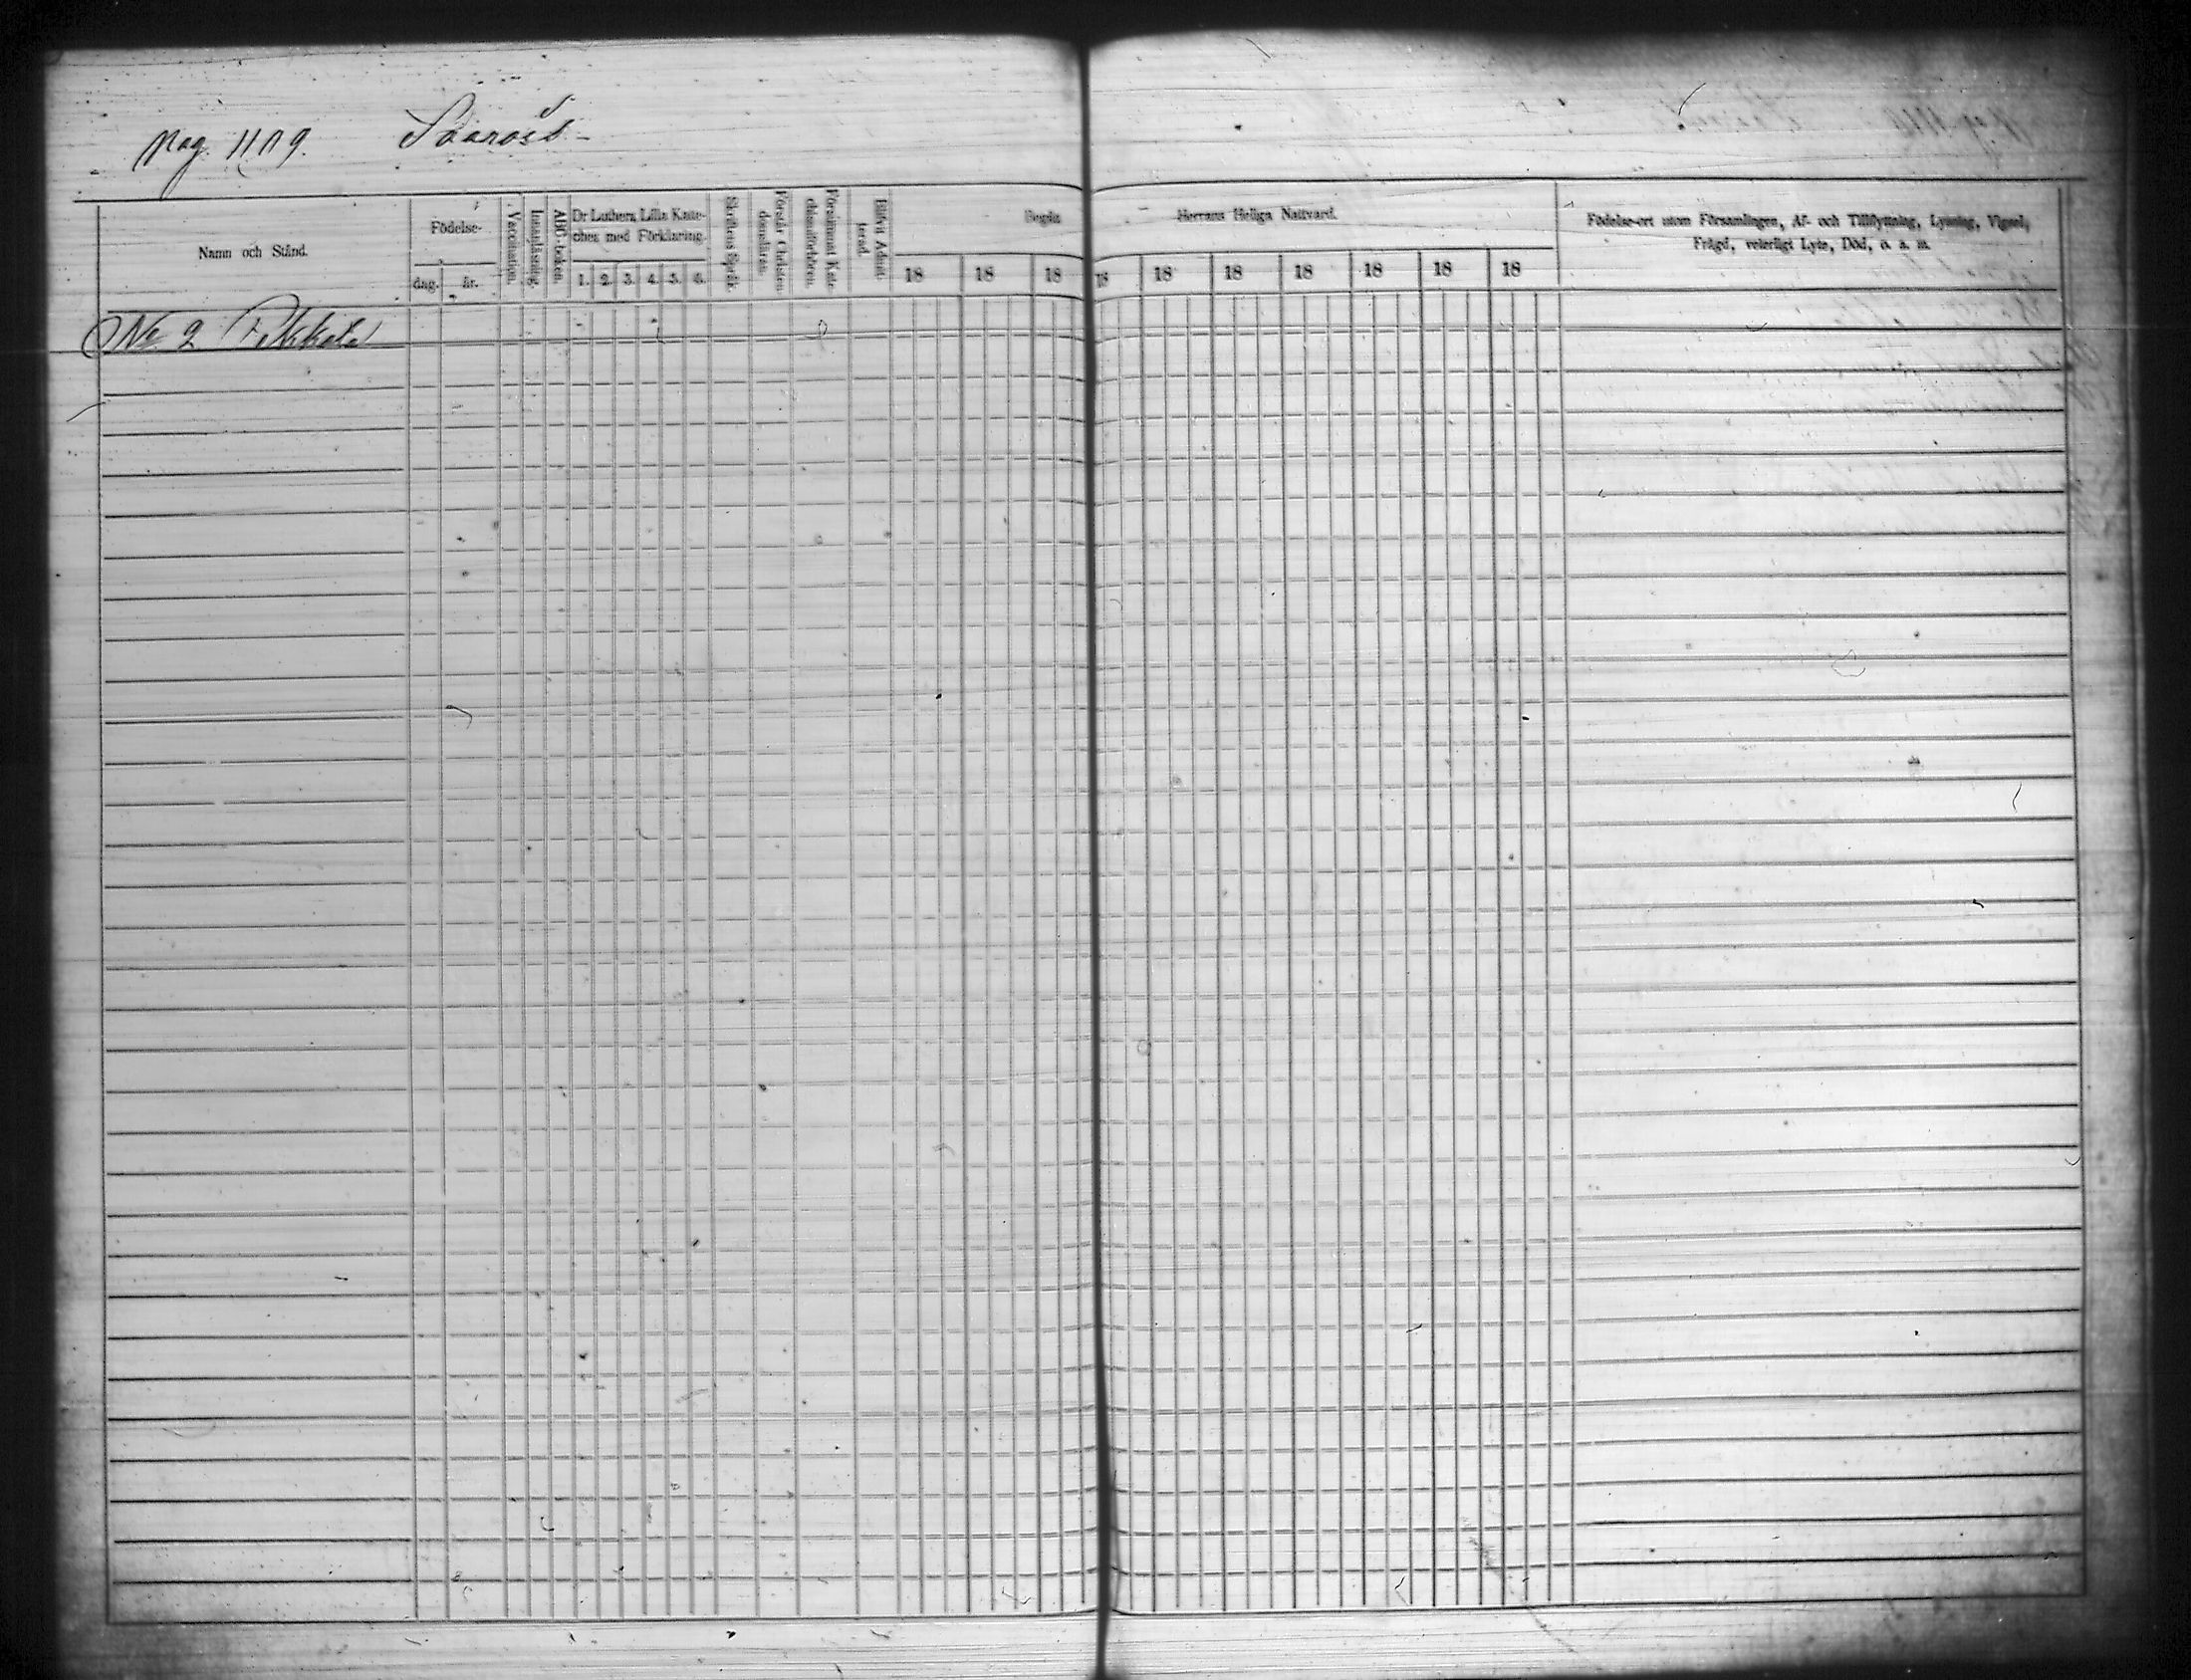 Pag. 1109.
Namn och Stånd.
Födelse-
dag.
år.
Vaccination.
Innanläsning.
ABC-boken.
Dr Luthers Lilla Kate-
ches med Förklaring.
1. 2. 3. 4. 5. 6.
Skriftens Språk.
Förstår Christen-
domsläran.
Försummat Kate-
chismiförhören.
Blifvit Admit-
terad.
Begått
Herrans Heliga Nattvard.
18 18 18 18 18 18 18 18 18 18
Födelse-ort utom Församlingen, Af- och Tillflyttning, Lysning, Vigsel,
Frägd, veterligt Lyte, Död, o. a. m.
No 2